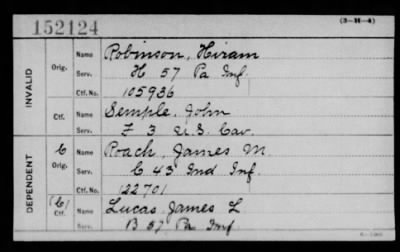 152124
(3-H-4)
INVALID
Orig.
Name Robinson, Hiram
Serv. H 57 Pa Inf.
Ctf. No. 105936
Ctf.
Name Semple, John
Serv. F 3 U.S. Cav.
DEPENDENT
C
Orig.
Name Roach, James M.
Serv. C 43 Ind Inf.
Ctf. No. 122701
(C)
Ctf.
Name Lucas, James L
Serv. B 57 Pa Inf.